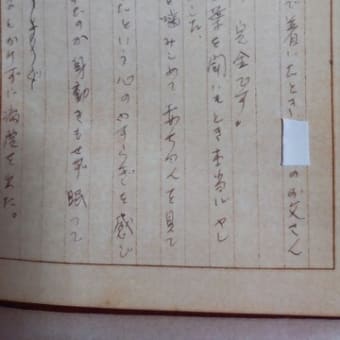 で着いたとき のお父さん
完全です。
葉を聞いたとき本当にやし
した。
噛みしめて 赤ちゃんを見て
たという心のやすらぎを感じ
たのか身動きもせず眠って
もかけずに病室を出た。